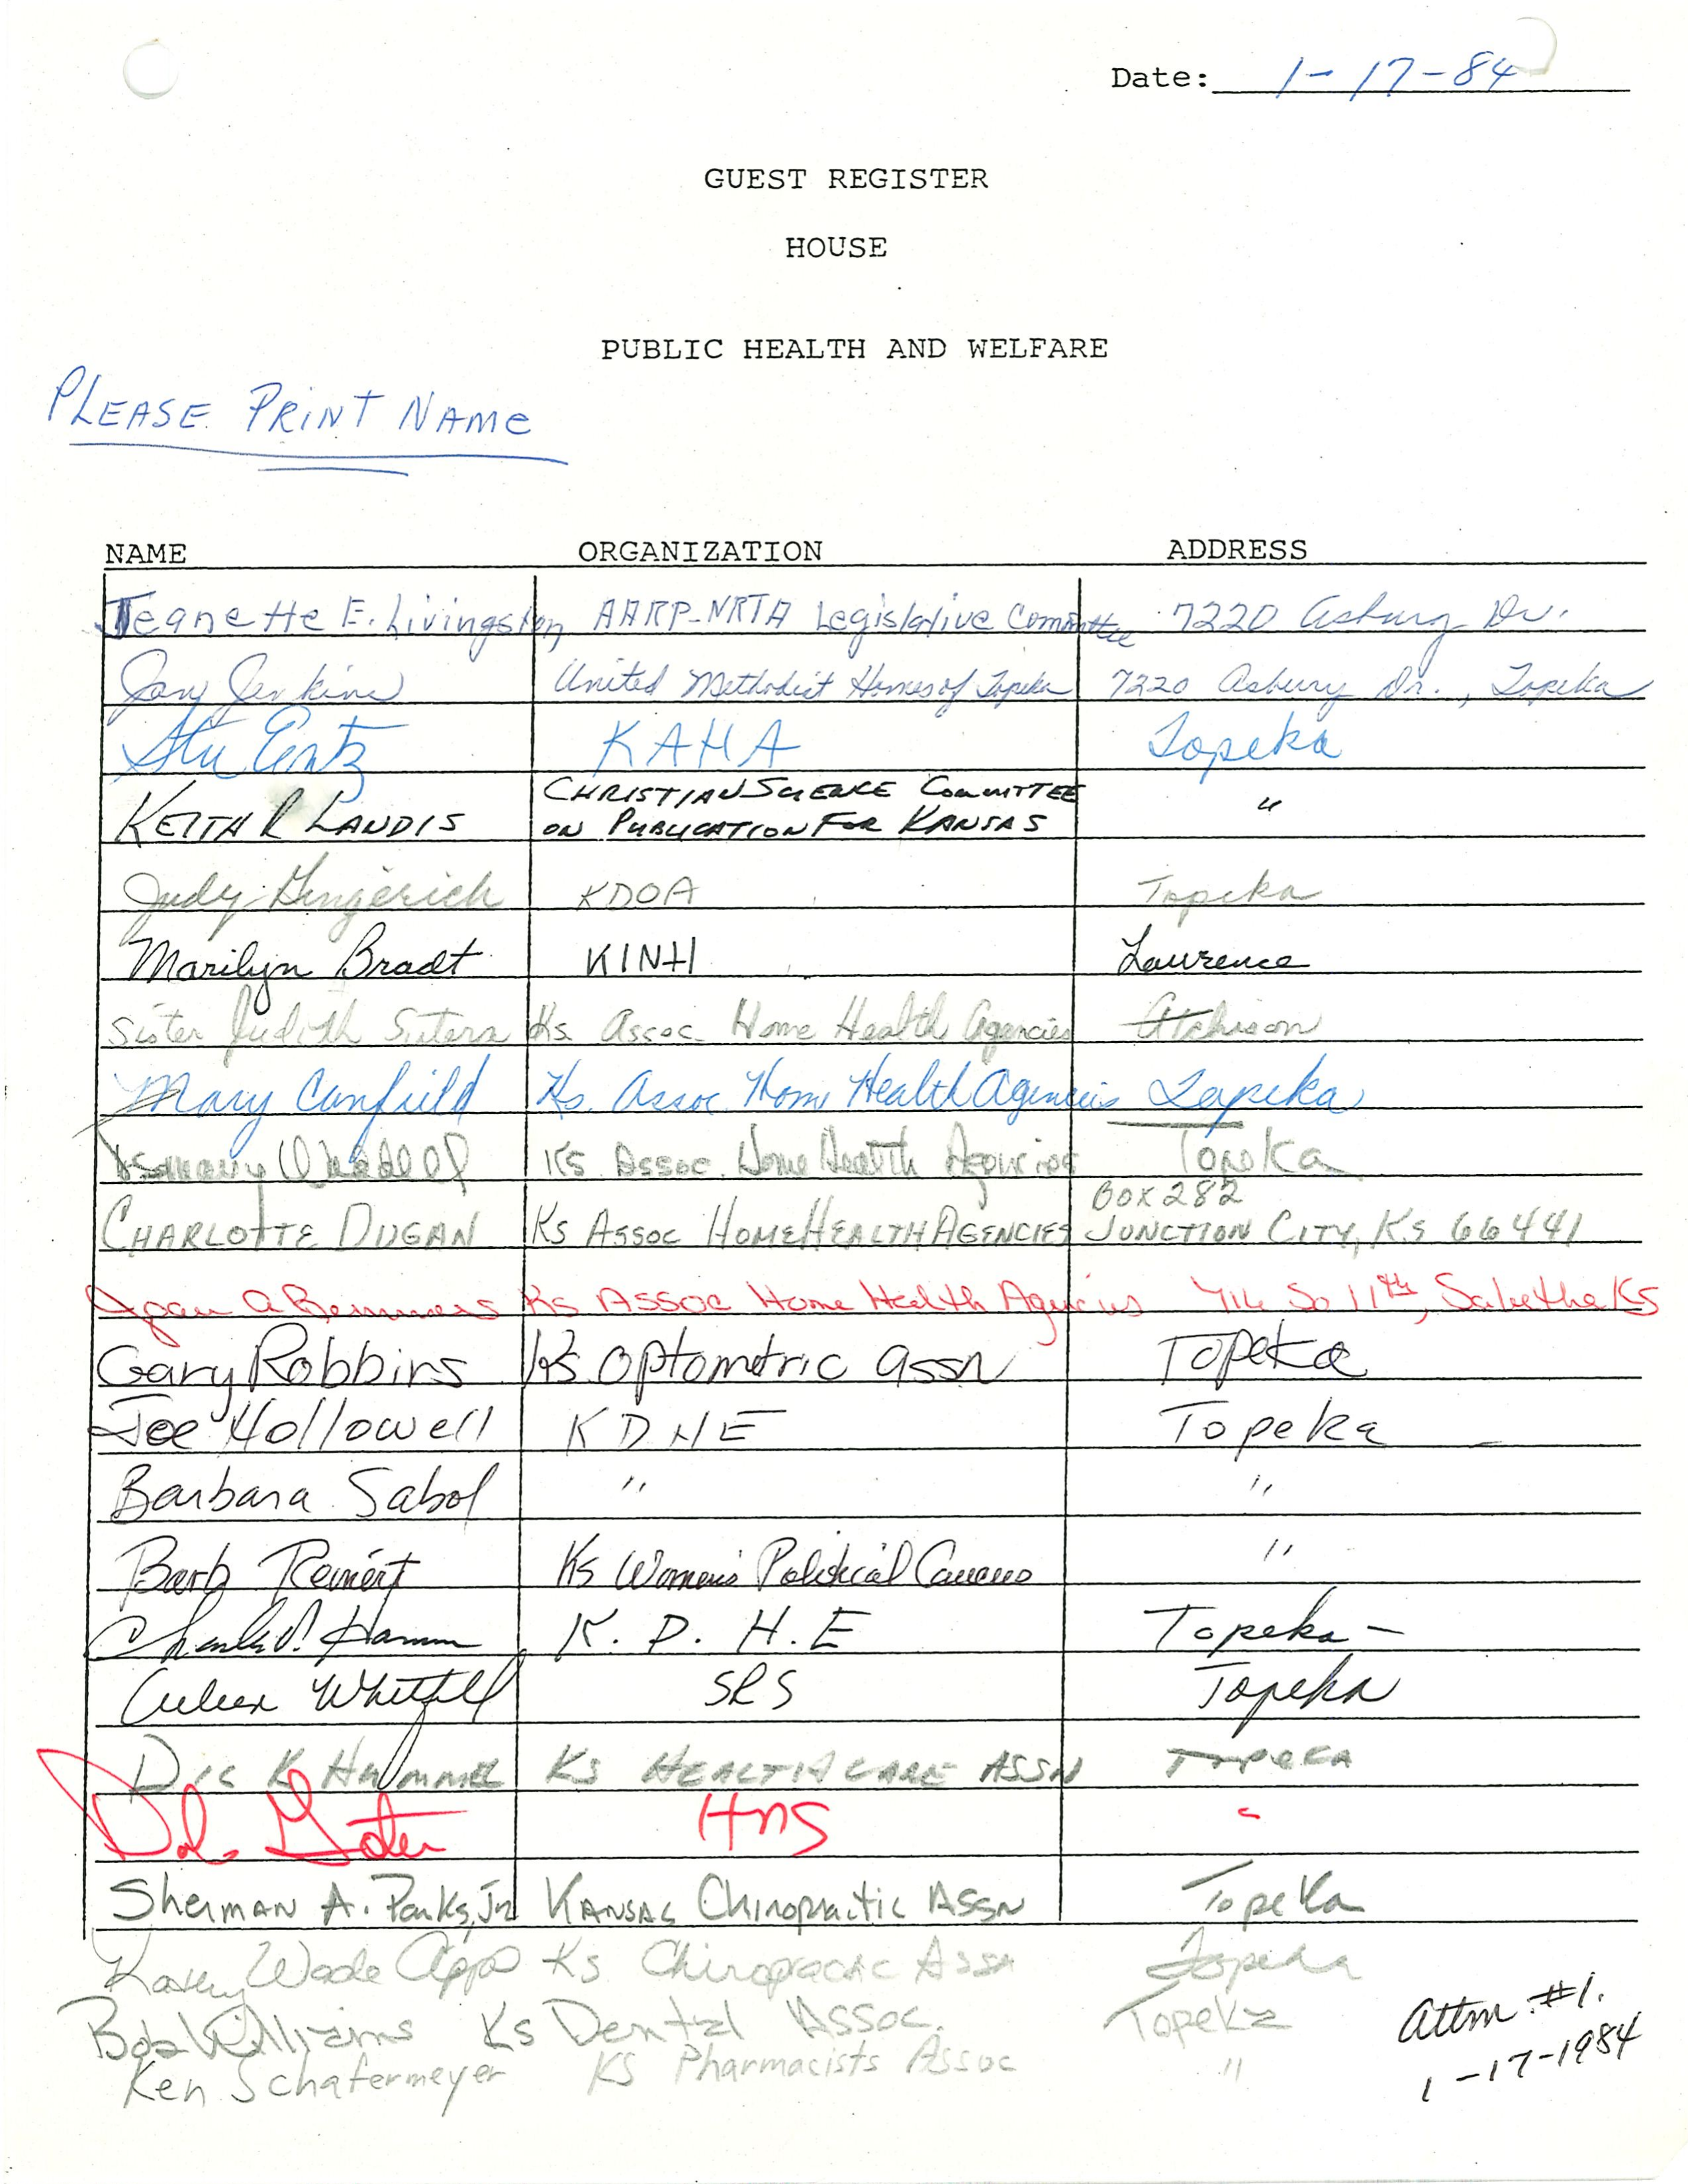 Date: 1-17-84
GUEST REGISTER
HOUSE
PUBLIC HEALTH AND WELFARE
PLEASE PRINT NAME
NAME ORGANIZATION ADDRESS
Jeanette E. Livingston AARP-NRTA Legislative Committee 7220 Asbury Dr.
Jay Jenkins United Methodist Homes of Topeka 7220 Asbury Dr., Topeka
Stu Entz KAHA Topeka
KEITH R LANDIS CHRISTIAN SCIENCE COMMITTEE
ON PUBLICATION FOR KANSAS "
Judy Gingerich KDOA Topeka
Marilyn Bradt KINH Lawrence
Sister Judith Sutera Ks. Assoc. Home Health Agencies Atchison
Mary Canfield Ks. Assoc. Home Health Agencies Topeka
Ks Assoc. Home Health Agencies Topeka
CHARLOTTE DUGAN KS ASSOC HOME HEALTH AGENCIES BOX 282
JUNCTION CITY, KS 66441
Joan A Remmers Ks Assoc Home Health Agencies 714 So 11th, Sabetha KS
Gary Robbins Ks Optometric assn Topeka
Joe Hollowell KDHE Topeka
Barbara Sabol " "
Barb Reinert Ks Women's Political Caucus "
Charles V. Hamm K. D. H. E Topeka -
Whitfill SRS Topeka
Dic K Hummel KS HEALTH CARE ASSN Topeka
HNS "
Sherman A. Parks, Jr. KANSAS Chiropractic ASSN Topeka
Kathy Wade Apps Ks Chiropractic Assn Topeka
Bob Williams Ks Dental Assoc. Topeka
Ken Schafermeyer KS Pharmacists Assoc "
Attm #1.
1-17-1984